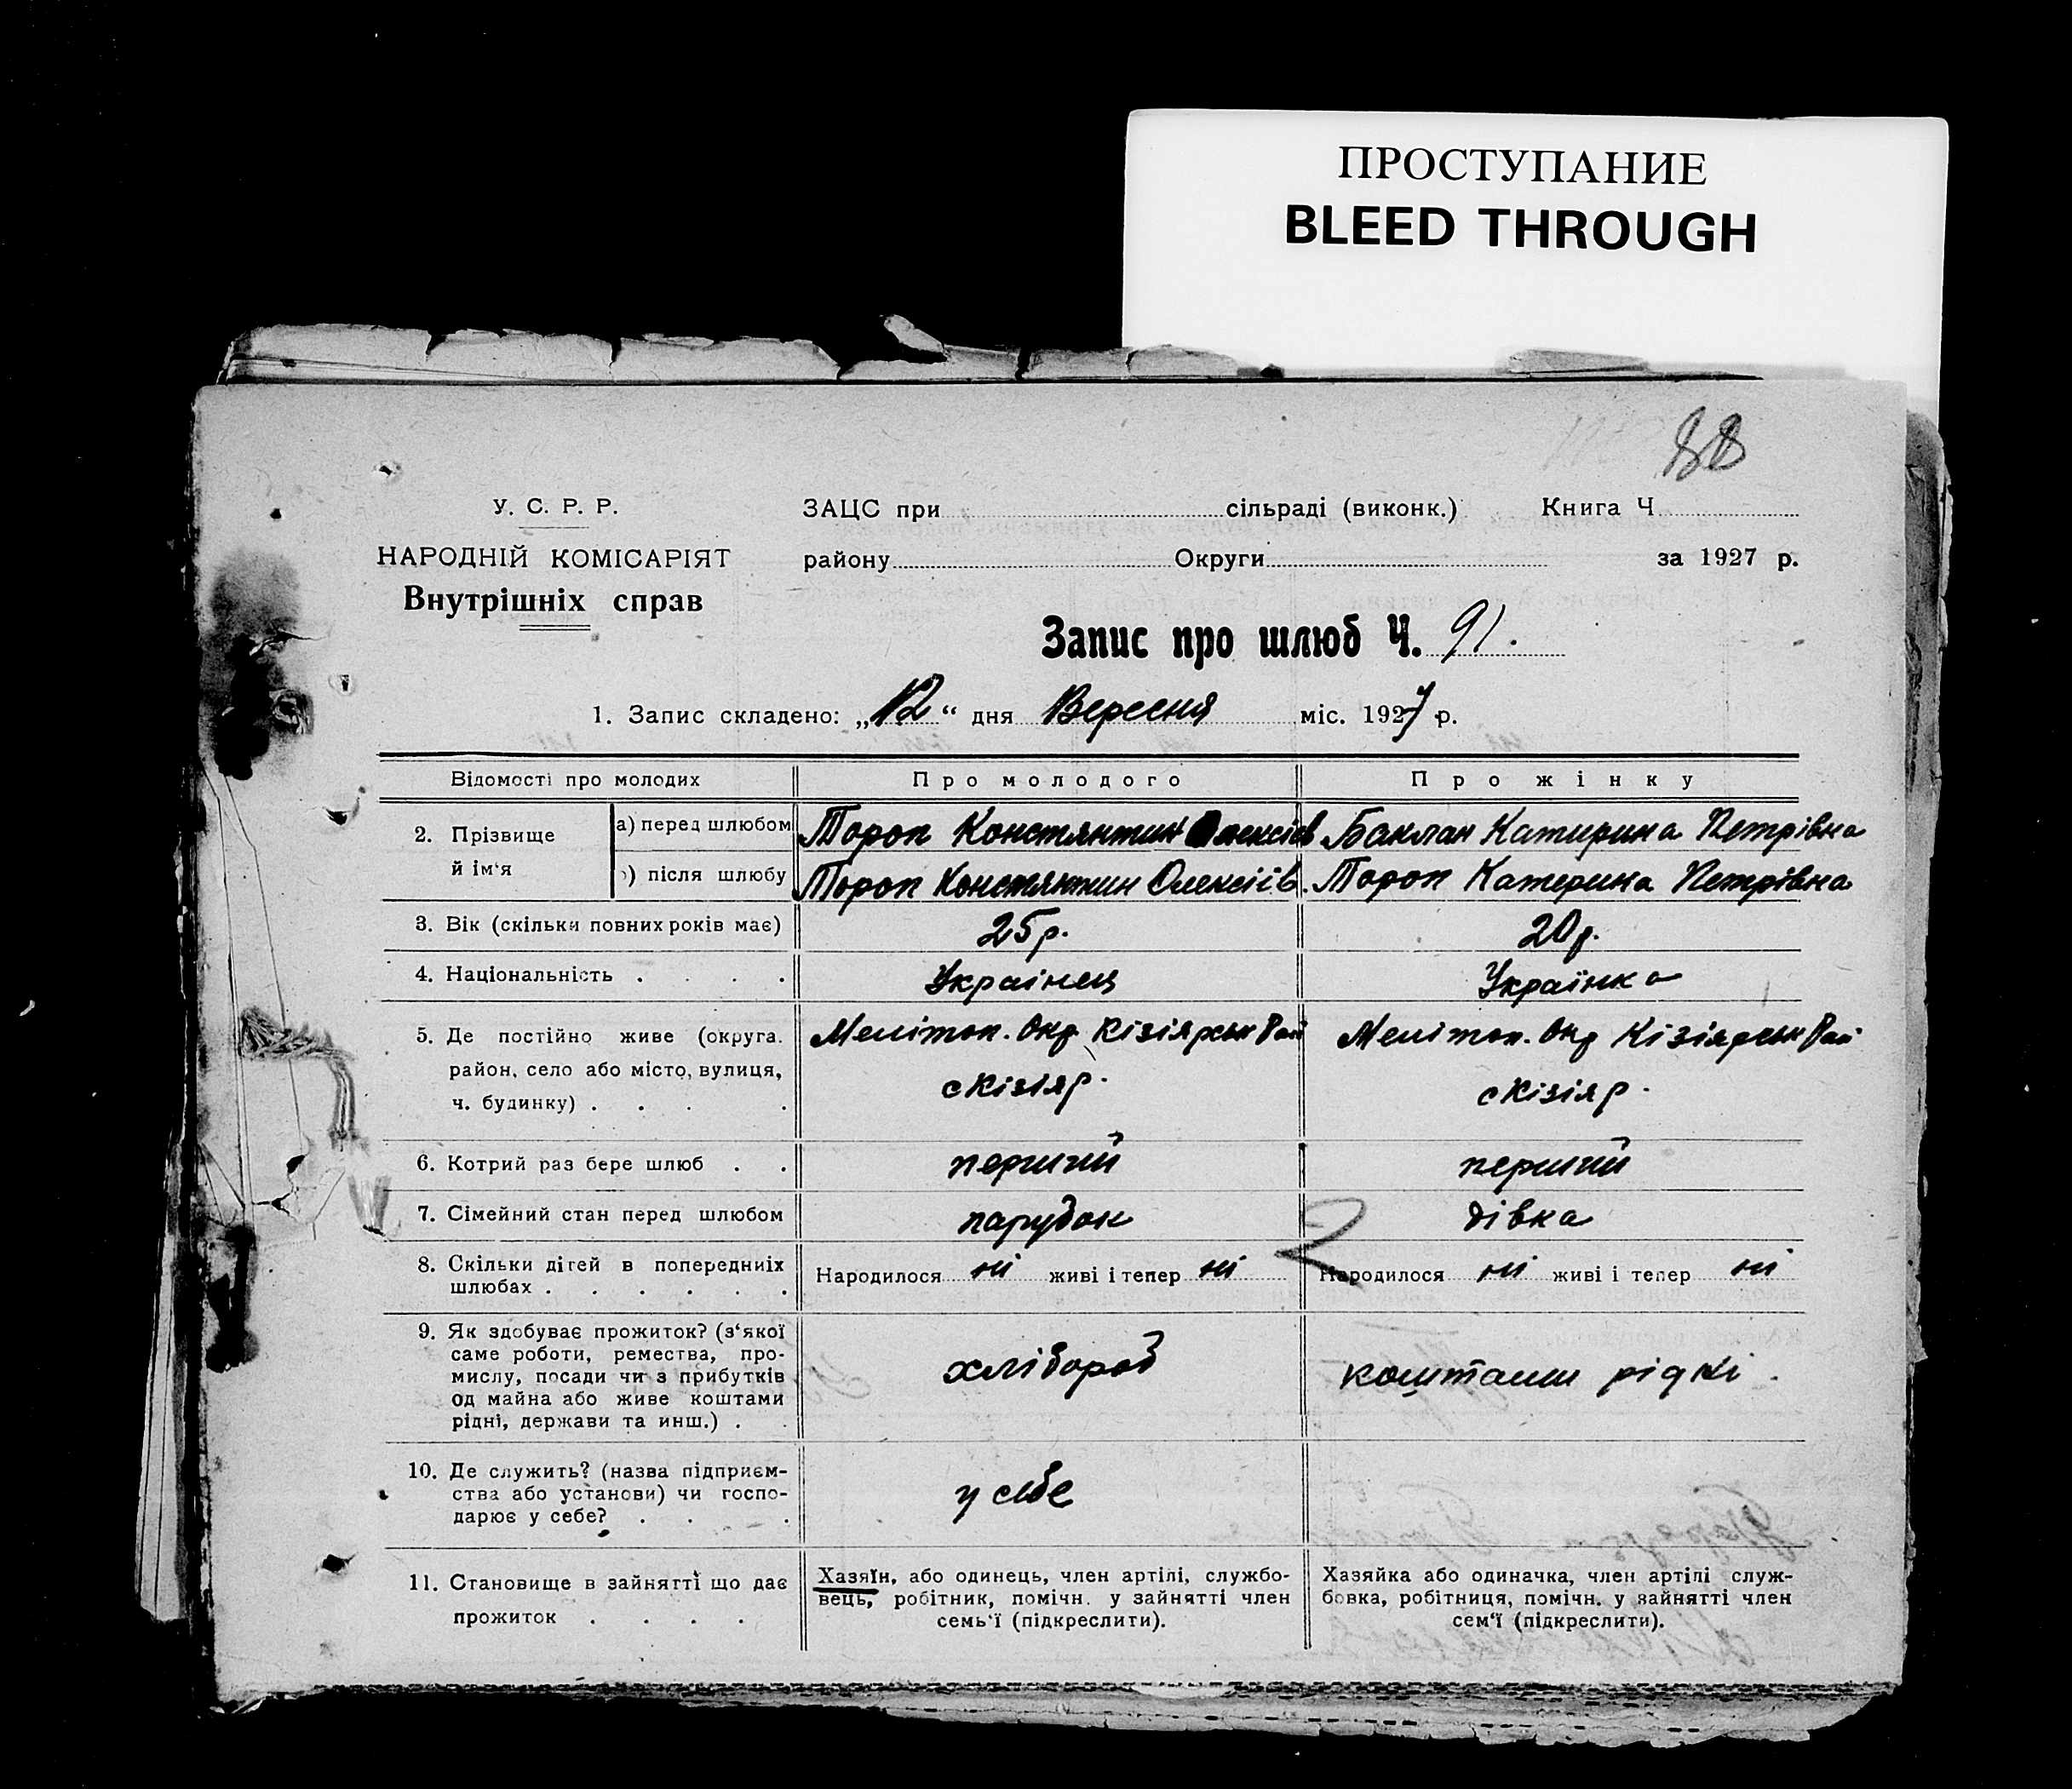 ПРОСТУПАНИЕ
BLEED THROUGH
88
У. С. Р. Р.
НАРОДНІЙ КОМІСАРІЯТ
Внутрішніх справ
ЗАЦС при сільраді (виконк.) Книга Ч
району Округи за 1927 р.
Запис про шлюб Ч. 91.
1. Запис складено: „12“ дня Вересня міс. 1927 р.
Відомості про молодих Про молодого Про жінку
2. Прізвище й ім'я а) перед шлюбом Тороп Констянтин Олексіїв Баклан Катирина Петрівна
) після шлюбу Тороп Констянтин Олексіїв. Тороп Катерина Петрівна
3. Вік (скільки повних років має) 25 р. 20 р.
4. Національність . . . . Украінец Українка
5. Де постійно живе (округа. Мелітоп. Окр Кізіярськ Рай Мелітоп. Окр Кізіярськ Рай
район, село або місто, вулиця, с Кізіяр. с Кізіяр.
ч. будинку) . . . .
6. Котрий раз бере шлюб . . перший перший
7. Сімейний стан перед шлюбом парубок дівка
2
8. Скільки дітей в попередниіх Народилося ні живі і тепер ні Народилося ні живі і тепер ні
шлюбах . . . . . .
9. Як здобуває прожиток? (з'якої
саме роботи, ремества, про-
мислу, посади чи з прибутків хлібороб коштами рідні.
од майна або живе коштами
рідні, держави та инш.) . .
10. Де служить? (назва підприєм-
ства або установи) чи госпо- у себе
дарює у себе? . . .
11. Становище в зайнятті що дає
прожиток . . . .
Хазяїн, або одинець, член артілі, службо-
вець, робітник, помічн. у зайнятті член
семь'ї (підкреслити).
Хазяйка або одиначка, член артілі служ-
бовка, робітниця, помічн. у зайнятті член
сем'ї (підкреслити).